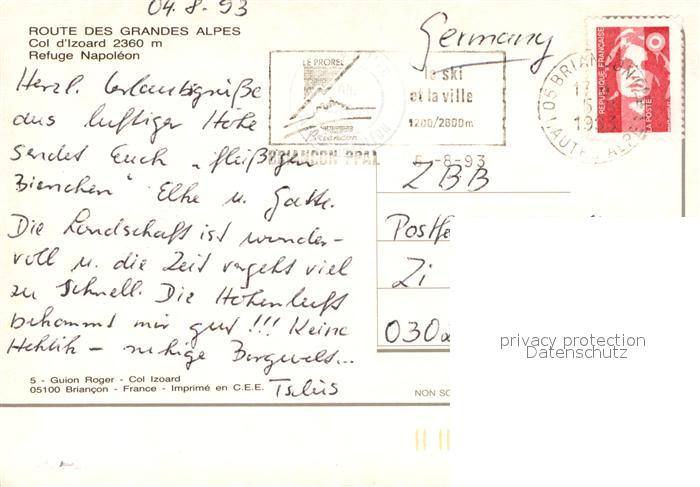 04.8-93
ROUTE DES GRANDES ALPES
Col d'Izoard 2360 m
Refuge Napoléon
Germany
Herzl. Urlaubsgrüße
aus luftiger Höhe
sendet Euch "fleißigen
Bienchen" Elke u. Gatte.
Die Landschaft ist wunder-
voll u. die Zeit vergeht viel
zu schnell. Die Höhenluft
bekommt mir gut!!! Keine
Hektik - ruhige Bergwelt...
Tschüs
LE PROREL
Briançon
le ski
et la ville
1200/2800m
BRIANCON PPAL
5-8-93
05 BRIANÇON
HAUTES ALPES
REPUBLIQUE FRANÇAISE
LA POSTE
ZBB
Postf
Zi
030
privacy protection
Datenschutz
5 - Guion Roger - Col Izoard
05100 Briançon - France - Imprimé en C.E.E.
NON SC